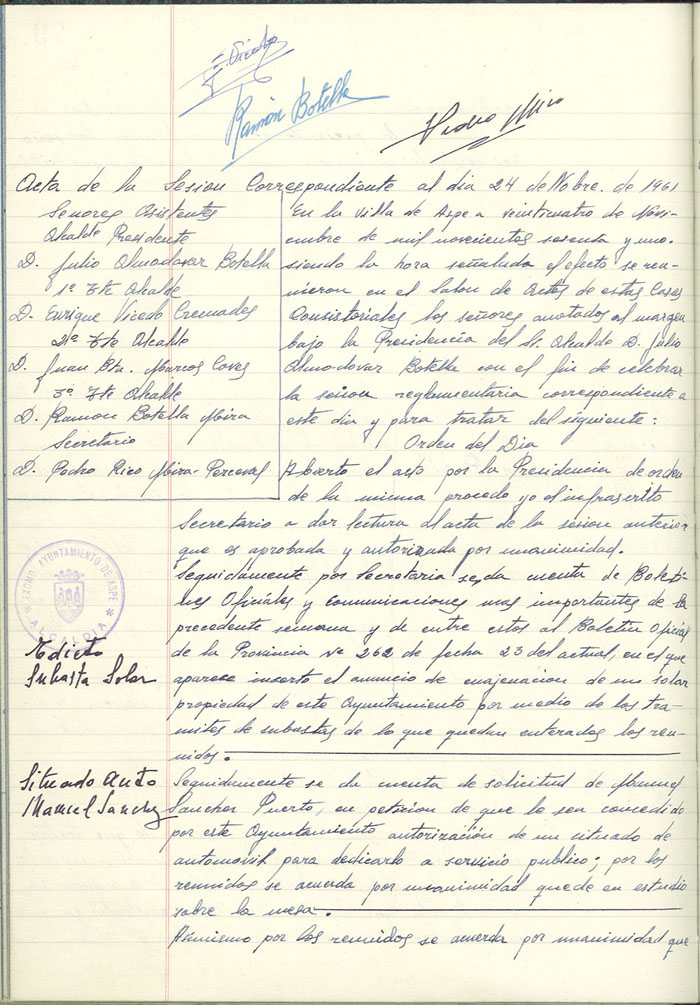 E. Vicedo
Ramón Botella
Pedro Mico
Acta de la Sesion Correspondiente al dia 24 de Nobre. de 1961
Señores Asistentes
Alcalde Presidente
D. Julio Almodovar Botella
1º Tte Alcalde
D. Enrique Vicedo Cremades
2º Tte Alcalde
D. Juan Bta. Marcos Caves
3º Tte Alcalde
D. Ramon Botella Mira
Secretario
D. Pedro Rico Mira-Perceval
En la Villa de Aspe a veinticuatro de Novi-
embre de mil novecientos sesenta y uno.
siendo la hora señalada al efecto se reu-
nieron en el Salon de Actos de estas Casas
Consistoriales los señores anotados al margen
bajo la Presidencia del Sr. Alcalde D. Julio
Almodovar Botella con el fin de celebrar
la sesion reglamentaria correspondiente a
este dia y para tratar del siguiente:
Orden del Dia
Abierto el acto por la Presidencia de orden
de la misma procedo yo el infrascrito
Secretario a dar lectura al acta de la sesion anterior
que es aprobada y autorizada por unanimidad.
Seguidamente por Secretaria se da cuenta de Boleti-
nes Oficiales y comunicaciones mas importantes de la
precedente semana y de entre estos al Boletin Oficial
de la Provincia Nº 262 de fecha 23 del actual, en el que
aparece inserto el anuncio de enajenacion de un solar
propiedad de este Ayuntamiento por medio de los tra-
mites de subastas de lo que quedan enterados los reu-
nidos.
EXCMO. AYUNTAMIENTO DE ASPE
ALCALDIA
Edicto
Subasta Solar
Situado Auto
Manuel Sanchez
Seguidamente se da cuenta de solicitud de Manuel
Sanchez Puerto, en peticion de que le sea concedido
por este Ayuntamiento autorización de un situado de
automovil para dedicarlo a servicio publico; por los
reunidos se acuerda por unanimidad quede en estudio
sobre la mesa.
Asimismo por los reunidos se acuerda por unanimidad que